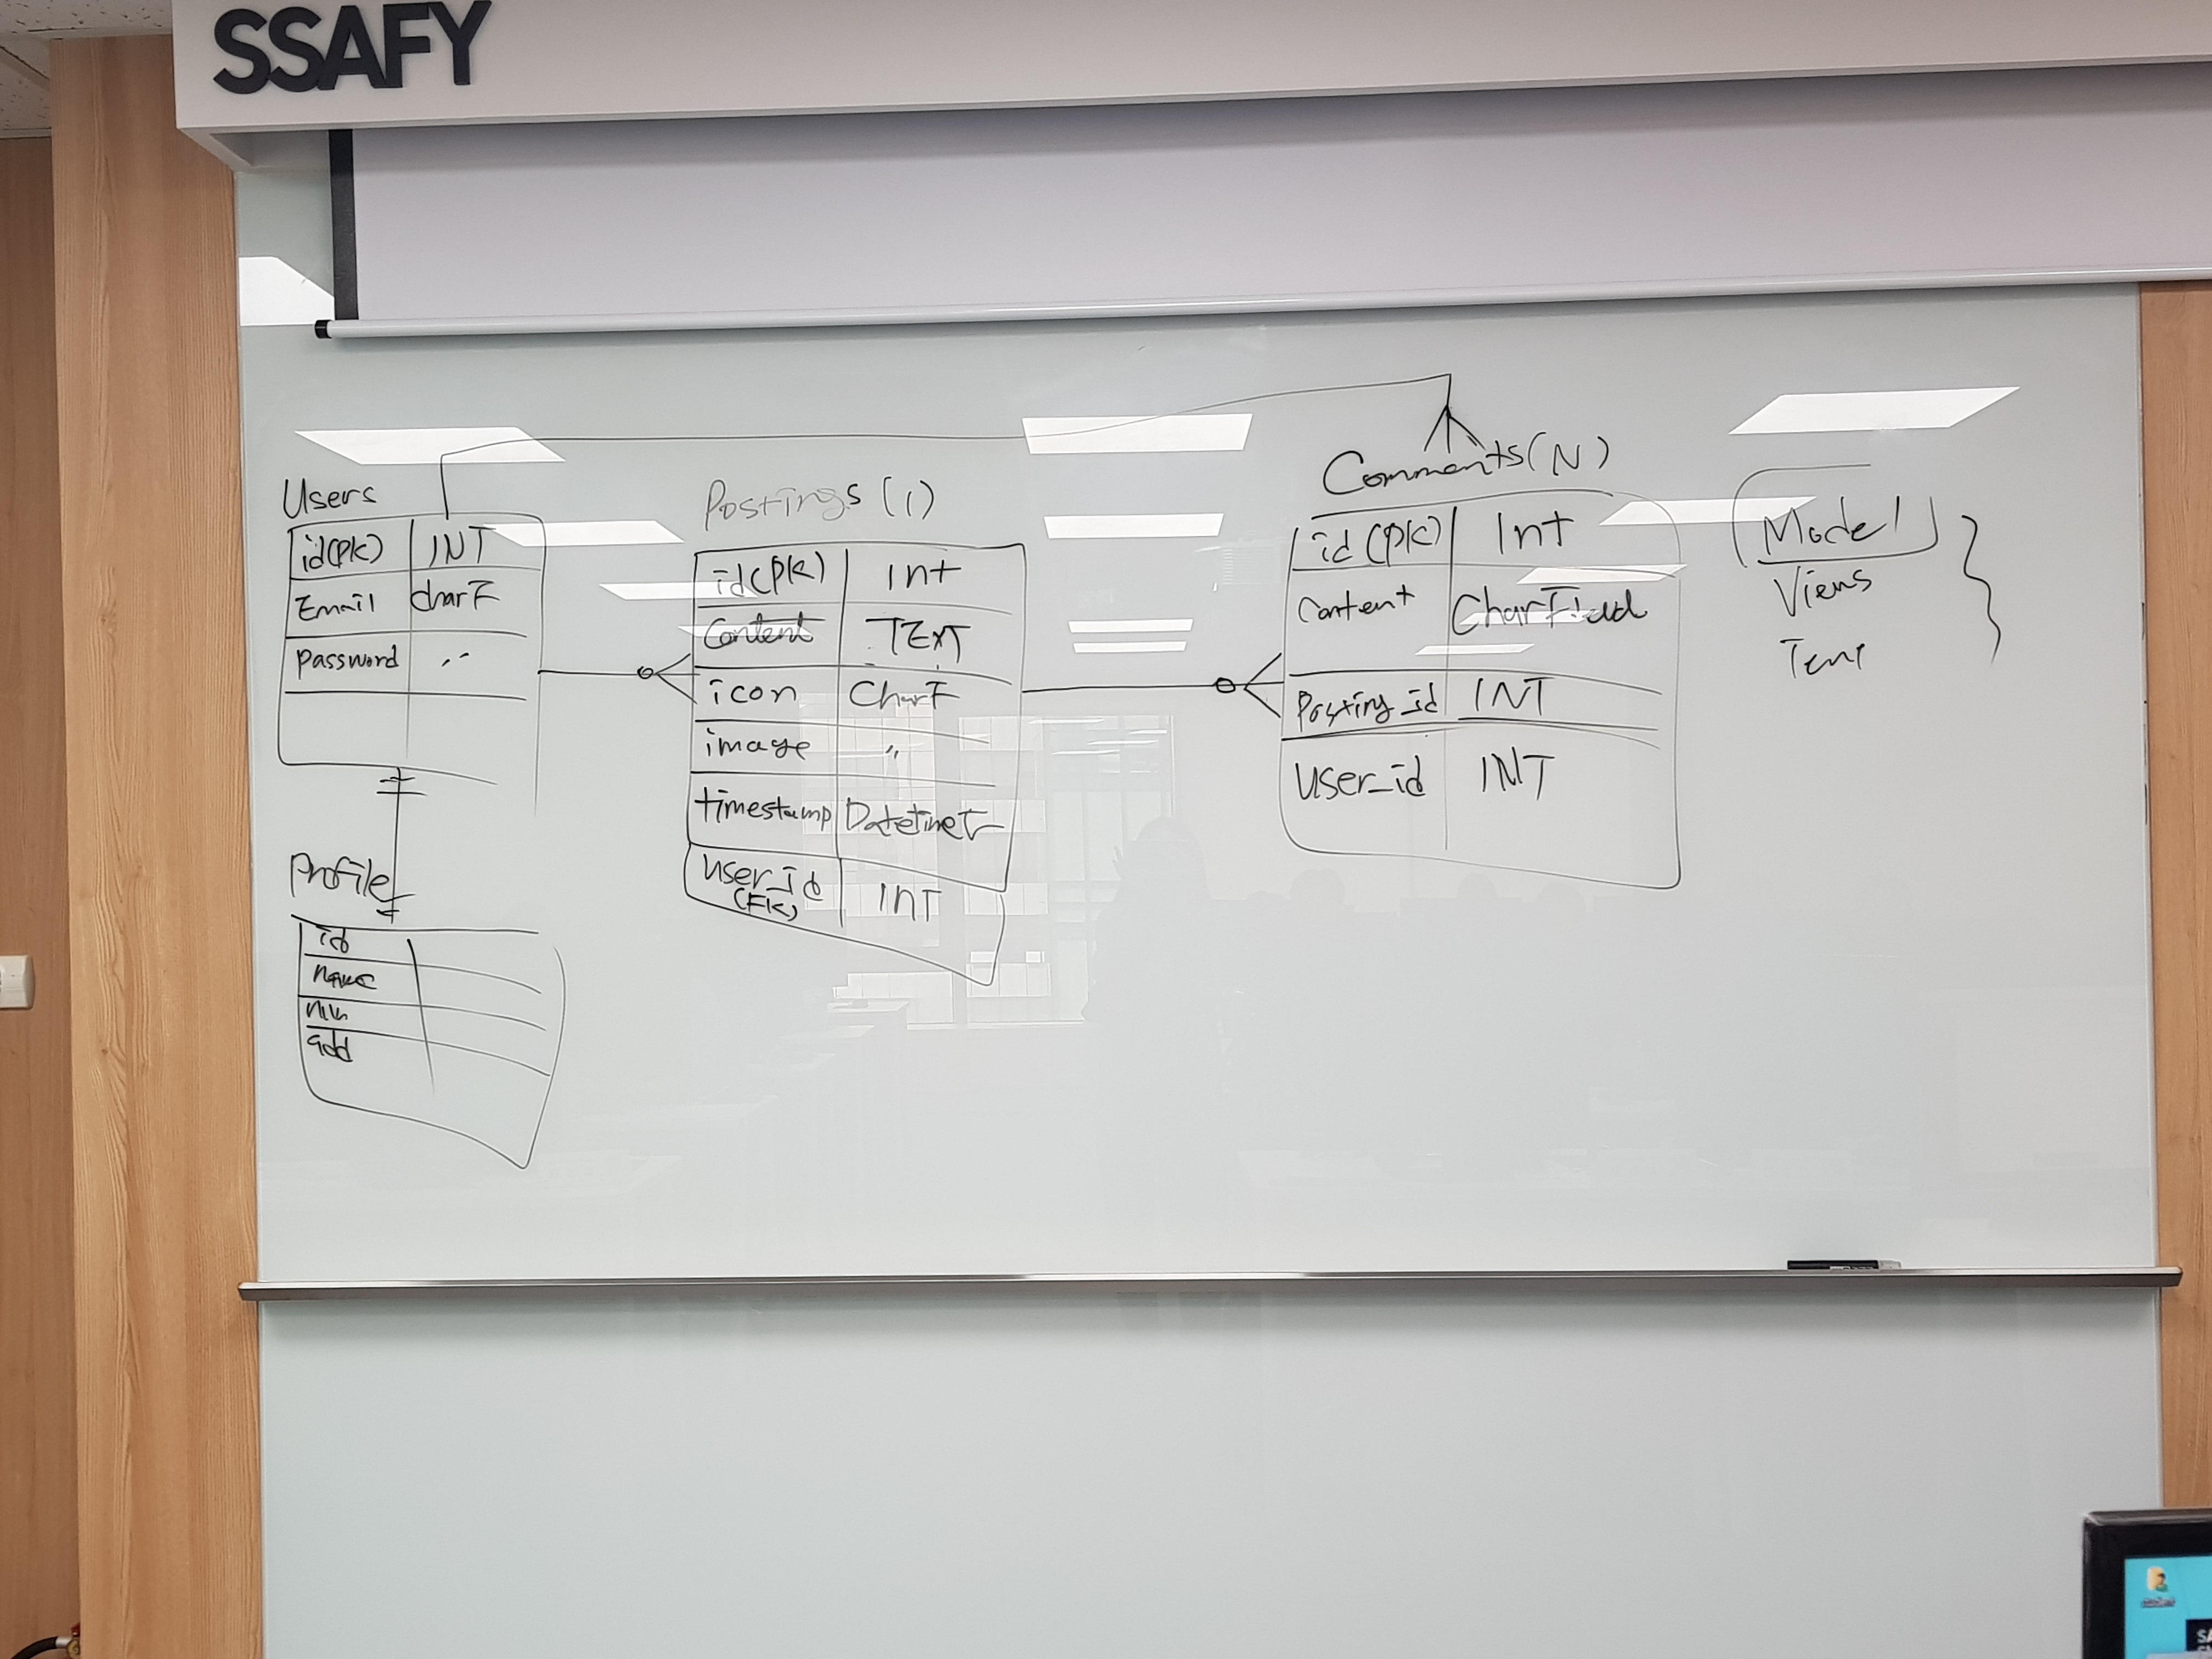 SSAFY
Users
id(PK) INT
Email charF
Password "
Profile
id
name
add
Postings (1)
id(PK) Int
Content TEXT
icon CharF
image "
timestamp DatetimeF
user_id (FK) INT
Comments (N)
id (PK) Int
Content CharField
Posting_id INT
User_id INT
Model
Views
Tem